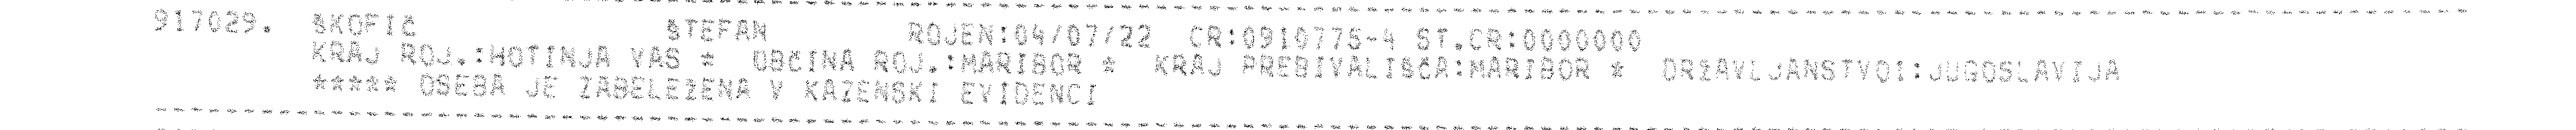 917029. ŠKOFIČ ŠTEFAN ROJEN:04/07/22 CR:0910775-4 ST.CR:0000000
KRAJ ROJ.:HOTINJA VAS * OBČINA ROJ.:MARIBOR * KRAJ PREBIVALIŠČA:MARIBOR * DRŽAVLJANSTVO1:JUGOSLAVIJA
***** OSEBA JE ZABELEŽENA V KAZENSKI EVIDENCI